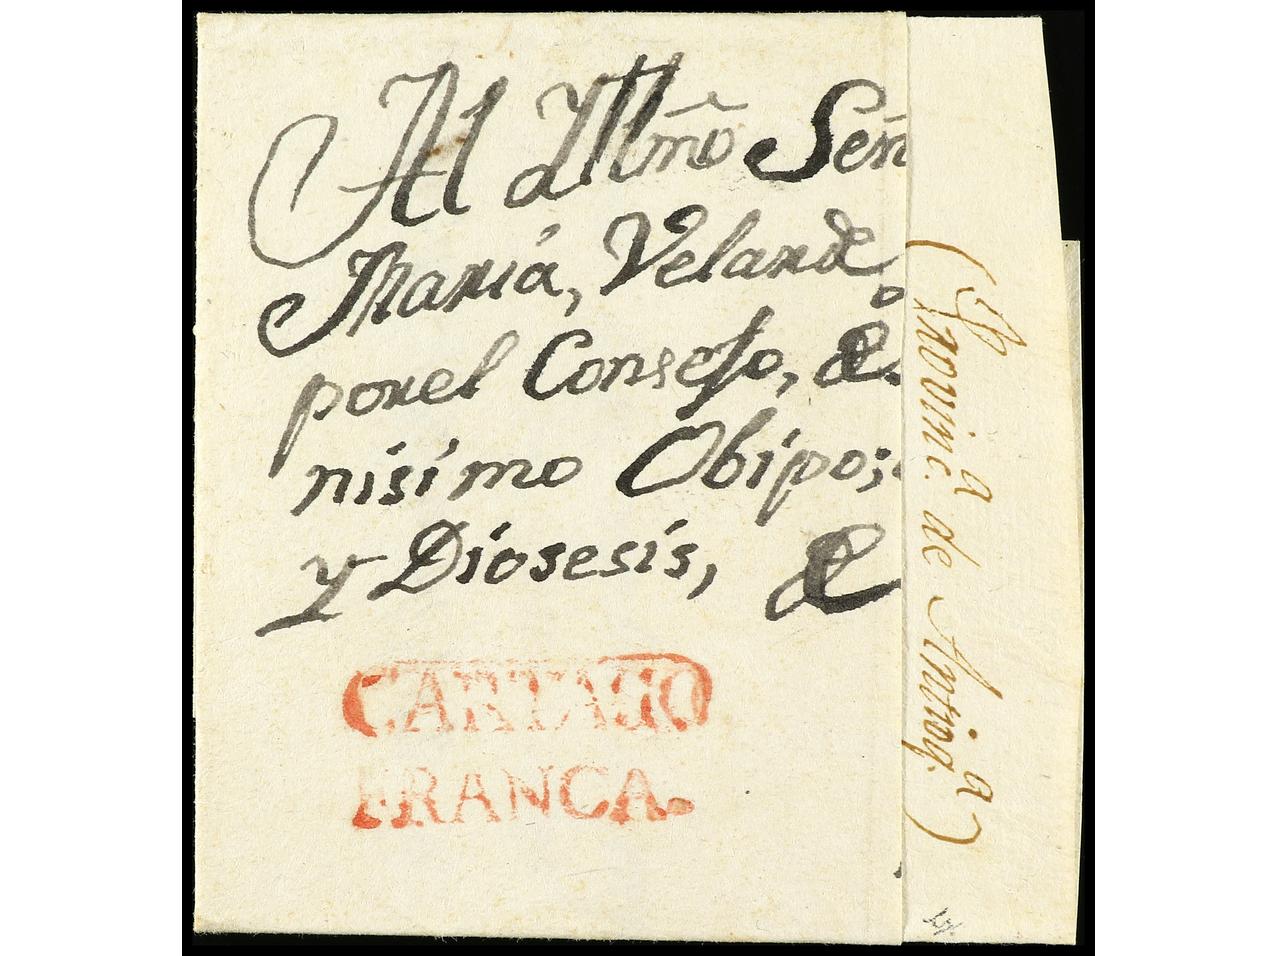 Al Yllmõ Señ
Maria, Velarde
por el Consejo, &.
nisimo Obipo;
y Diosesis, &
CARTAGO
FRANCA.
(Provinc.ª de Antioq.ª)